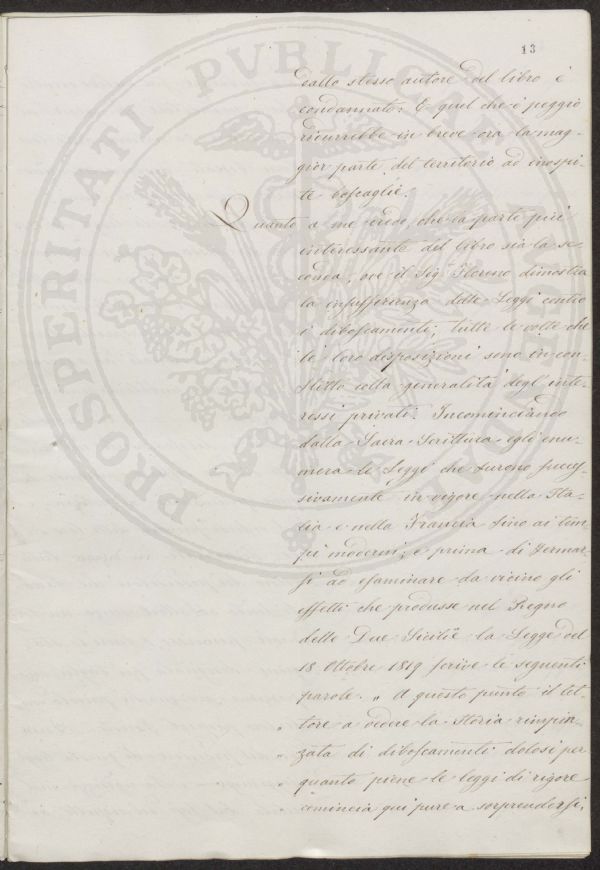 13
dallo stesso autore del libro è
condannato: E quel che è peggio
ridurrebbe in breve ora la mag-
gior parte del territorio ad inospi-
te boscaglie.
Quanto a me credo, che la parte più
interessante del libro sia la se-
conda, ove il Sig.r Floreno dimostra
la insufficienza delle Leggi contro
i diboscamenti; tutte le volte che
le loro disposizioni sono in con-
flitto colla generalità degl'inte-
ressi privati. Incominciando
dalla Sacra Scrittura egli enu-
mera le Leggi che furono succes-
sivamente in vigore nella Ita-
lia e nella Francia sino ai tem-
pi moderni; e prima di fermar-
si ad esaminare da vicino gli
effetti che produsse nel Regno
delle Due Sicilie la Legge del
18 Ottobre 1819 scrive le seguenti
parole. „ A questo punto il let-
„ tore a vedere la Storia rimpin-
„ zata di diboscamenti dolosi per
„ quanto piene le leggi di rigore
„ comincia qui pure a sorprendersi,
PROSPERITATI PVBLICAE AVGENDAE